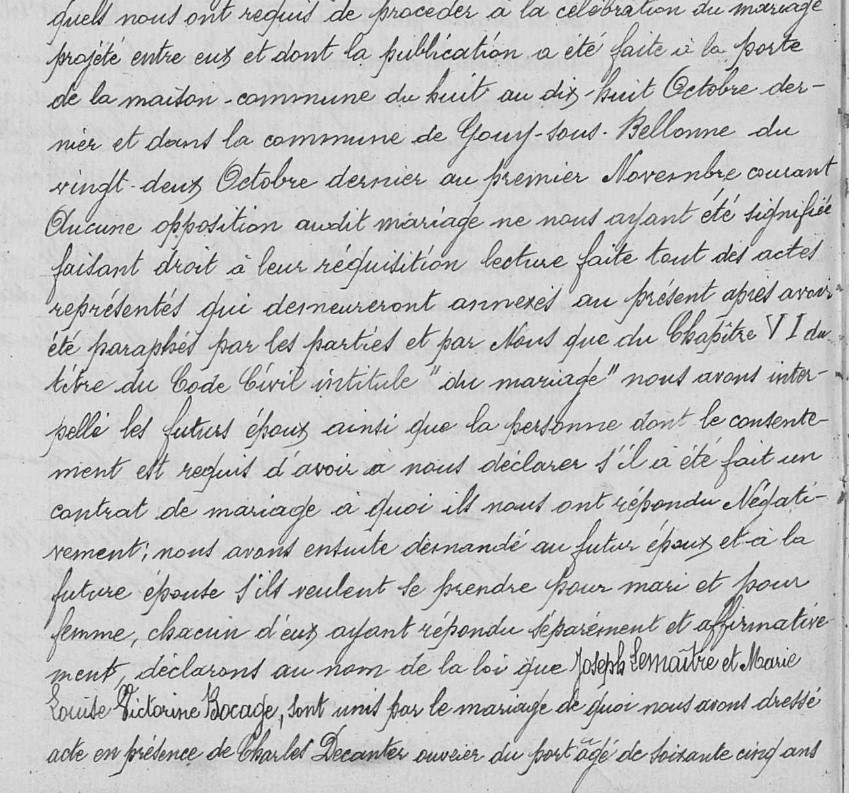 quels nous ont requis de procéder à la célébration du mariage
projété entre eux et dont la publication a été faite à la porte
de la maison-commune du huit au dix-huit Octobre der-
nier et dans la commune de Gouy-sous-Bellonne du
vingt-deux Octobre dernier au premier Novembre courant
Aucune opposition audit mariage ne nous ayant été signifiée
faisant droit à leur réquisition lecture faite tout des actes
représentés qui demeureront annexés au présent après avoir
été paraphés par les parties et par Nous que du Chapitre VI du
titre du Code Civil intitulé "du mariage" nous avons inter-
pellé les futurs époux ainsi que la personne dont le consente-
ment est requis d'avoir à nous déclarer s'il a été fait un
contrat de mariage à quoi ils nous ont répondu Négati-
vement; nous avons ensuite demandé au futur époux et à la
future épouse s'ils veulent se prendre pour mari et pour
femme, chacun d'eux ayant répondu séparément et affirmative
ment, déclarons au nom de la loi que Joseph Lemaître et Marie
Louise Victorine Bocage, sont unis par le mariage de quoi nous avons dressé
acte en présence de Charles Decanter ouvrier du port âgé de soixante cinq ans